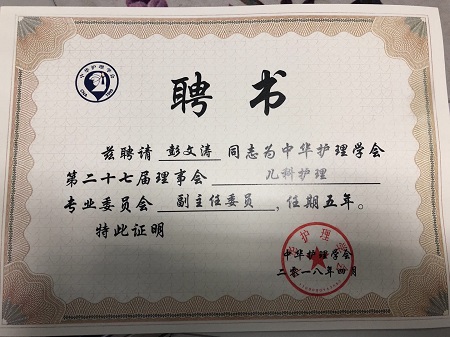 中华护理学会
聘书
兹聘请 彭文涛 同志为中华护理学会
第二十七届理事会 儿科护理
专业委员会 副主任委员 ,任期五年。
特此证明
中华护理学会
二零一八年四月